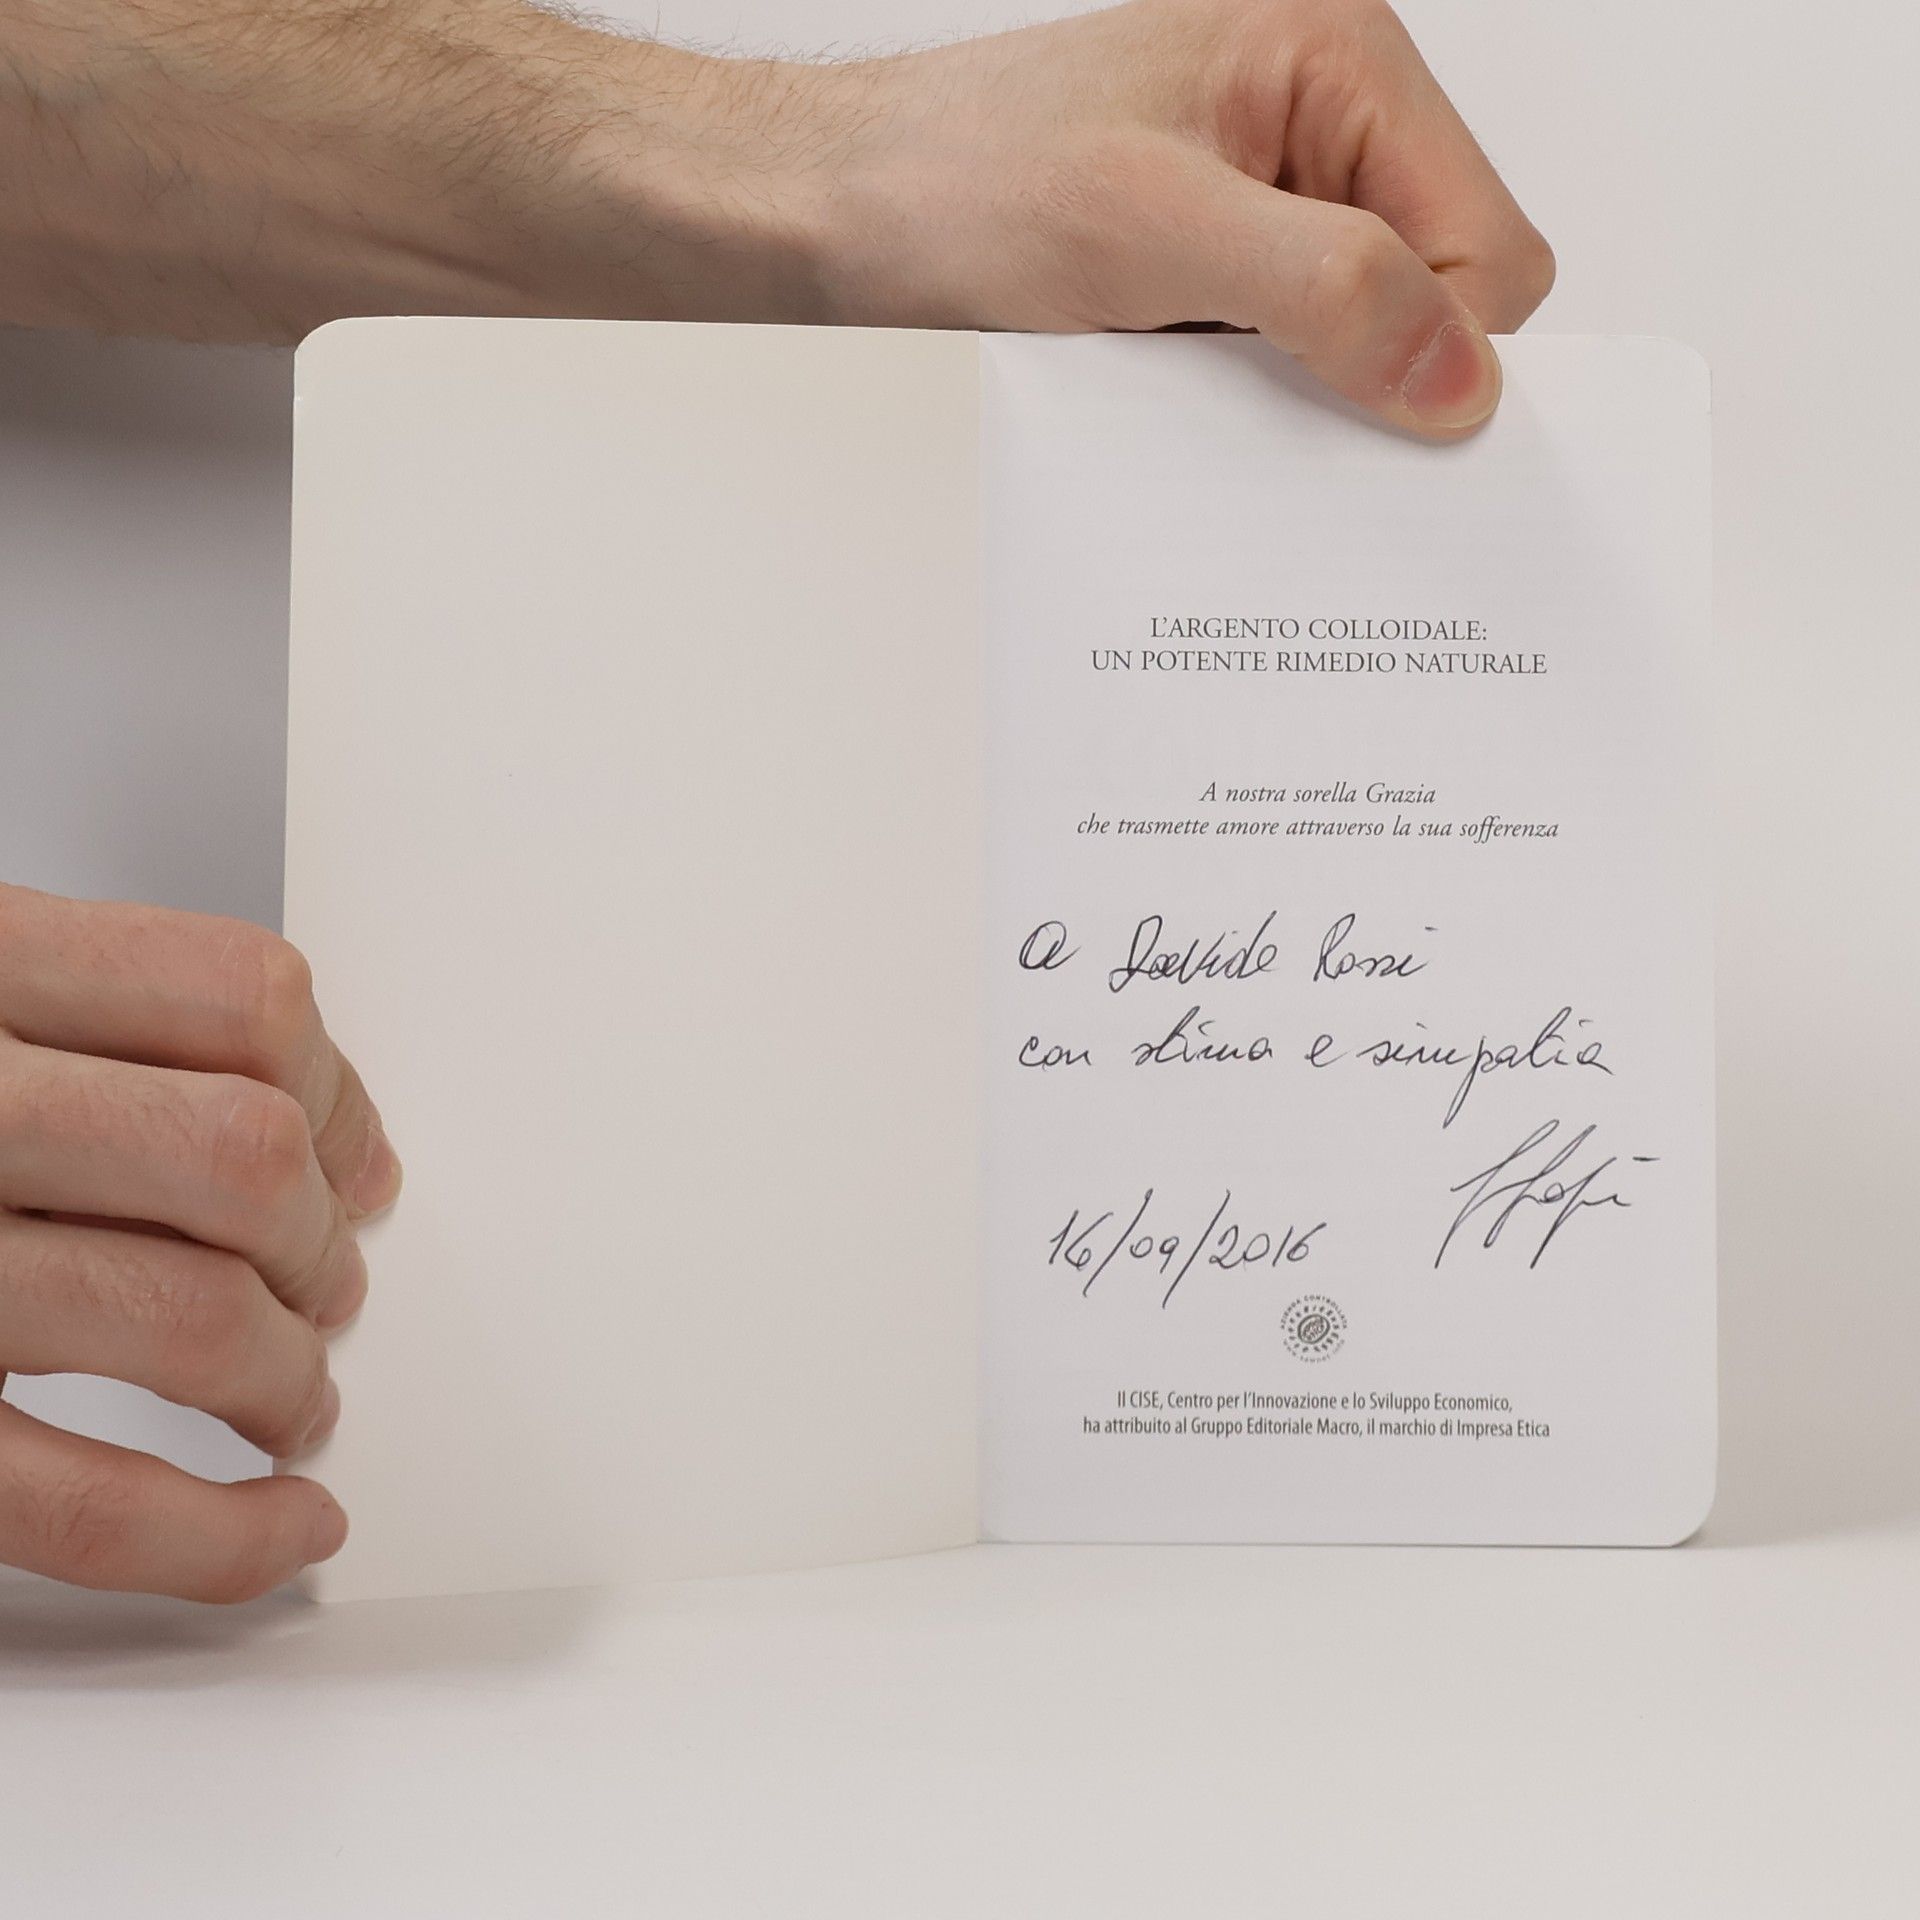 L'ARGENTO COLLOIDALE:
UN POTENTE RIMEDIO NATURALE
A nostra sorella Grazia
che trasmette amore attraverso la sua sofferenza
a Davide Rossi
con stima e simpatia
16/09/2016
AZIENDA CONTROLLATA
Il CISE, Centro per l'Innovazione e lo Sviluppo Economico,
ha attribuito al Gruppo Editoriale Macro, il marchio di Impresa Etica